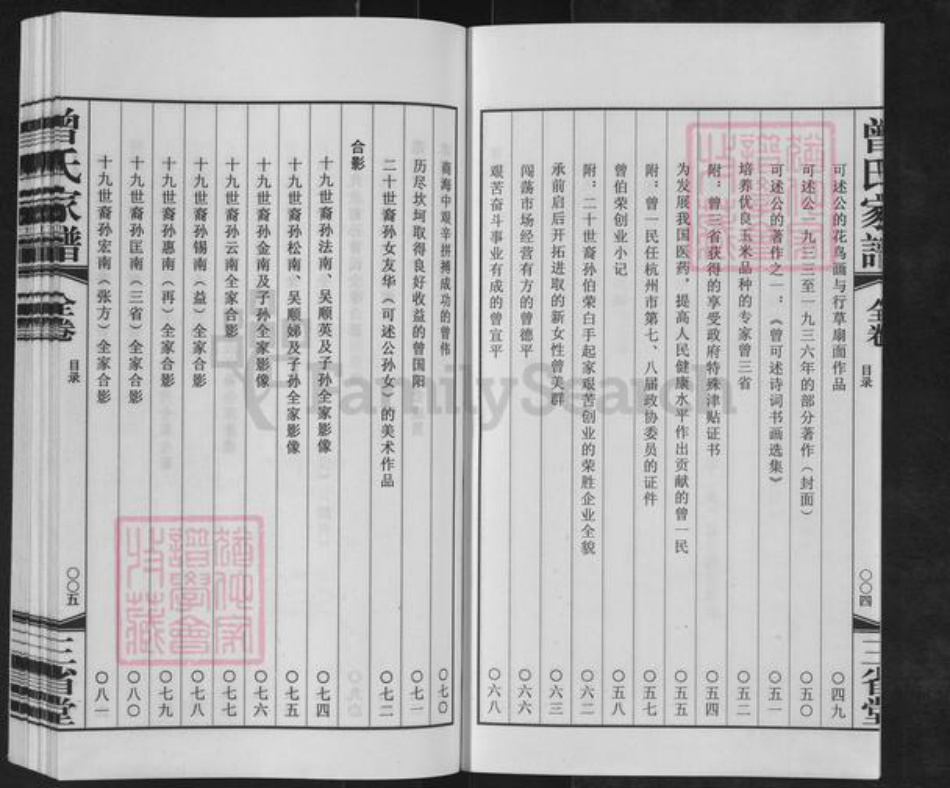 曾氏家谱 全卷 目录 〇〇四 三省堂
可述公的花鸟画与行草扇面作品 〇四九
可述公一九三三至一九三六年的部分著作（封面） 〇五〇
可述公的著作之一：《曾可述诗词书画选集》 〇五一
培养优良玉米品种的专家曾三省 〇五二
附：曾三省获得的享受政府特殊津贴证书 〇五四
为发展我国医药，提高人民健康水平作出贡献的曾一民 〇五五
附：曾一民任杭州市第七、八届政协委员的证件 〇五七
曾伯荣创业小记 〇五八
附：二十世裔孙伯荣白手起家艰苦创业的荣胜企业全貌 〇六二
承前启后开拓进取的新女性曾美群 〇六三
闯荡市场经营有方的曾德平 〇六六
艰苦奋斗事业有成的曾宣平 〇六八
商海中艰辛拼搏成功的曾伟 〇七〇
历尽坎坷取得良好收益的曾国阳 〇七一
二十世裔孙女友华（可述公孙女）的美术作品 〇七二
合影
十九世裔孙法南、吴顺英及子孙全家影像 〇七四
十九世裔孙松南、吴顺娣及子孙全家影像 〇七五
十九世裔孙金南及子孙全家影像 〇七六
十九世裔孙云南全家合影 〇七七
十九世裔孙锡南（益）全家合影 〇七八
十九世裔孙惠南（再）全家合影 〇七九
十九世裔孙匡南（三省）全家合影 〇八〇
十九世裔孙宏南（张方）全家合影 〇八一
曾氏家谱 全卷 目录 〇〇五 三省堂
FamilySearch